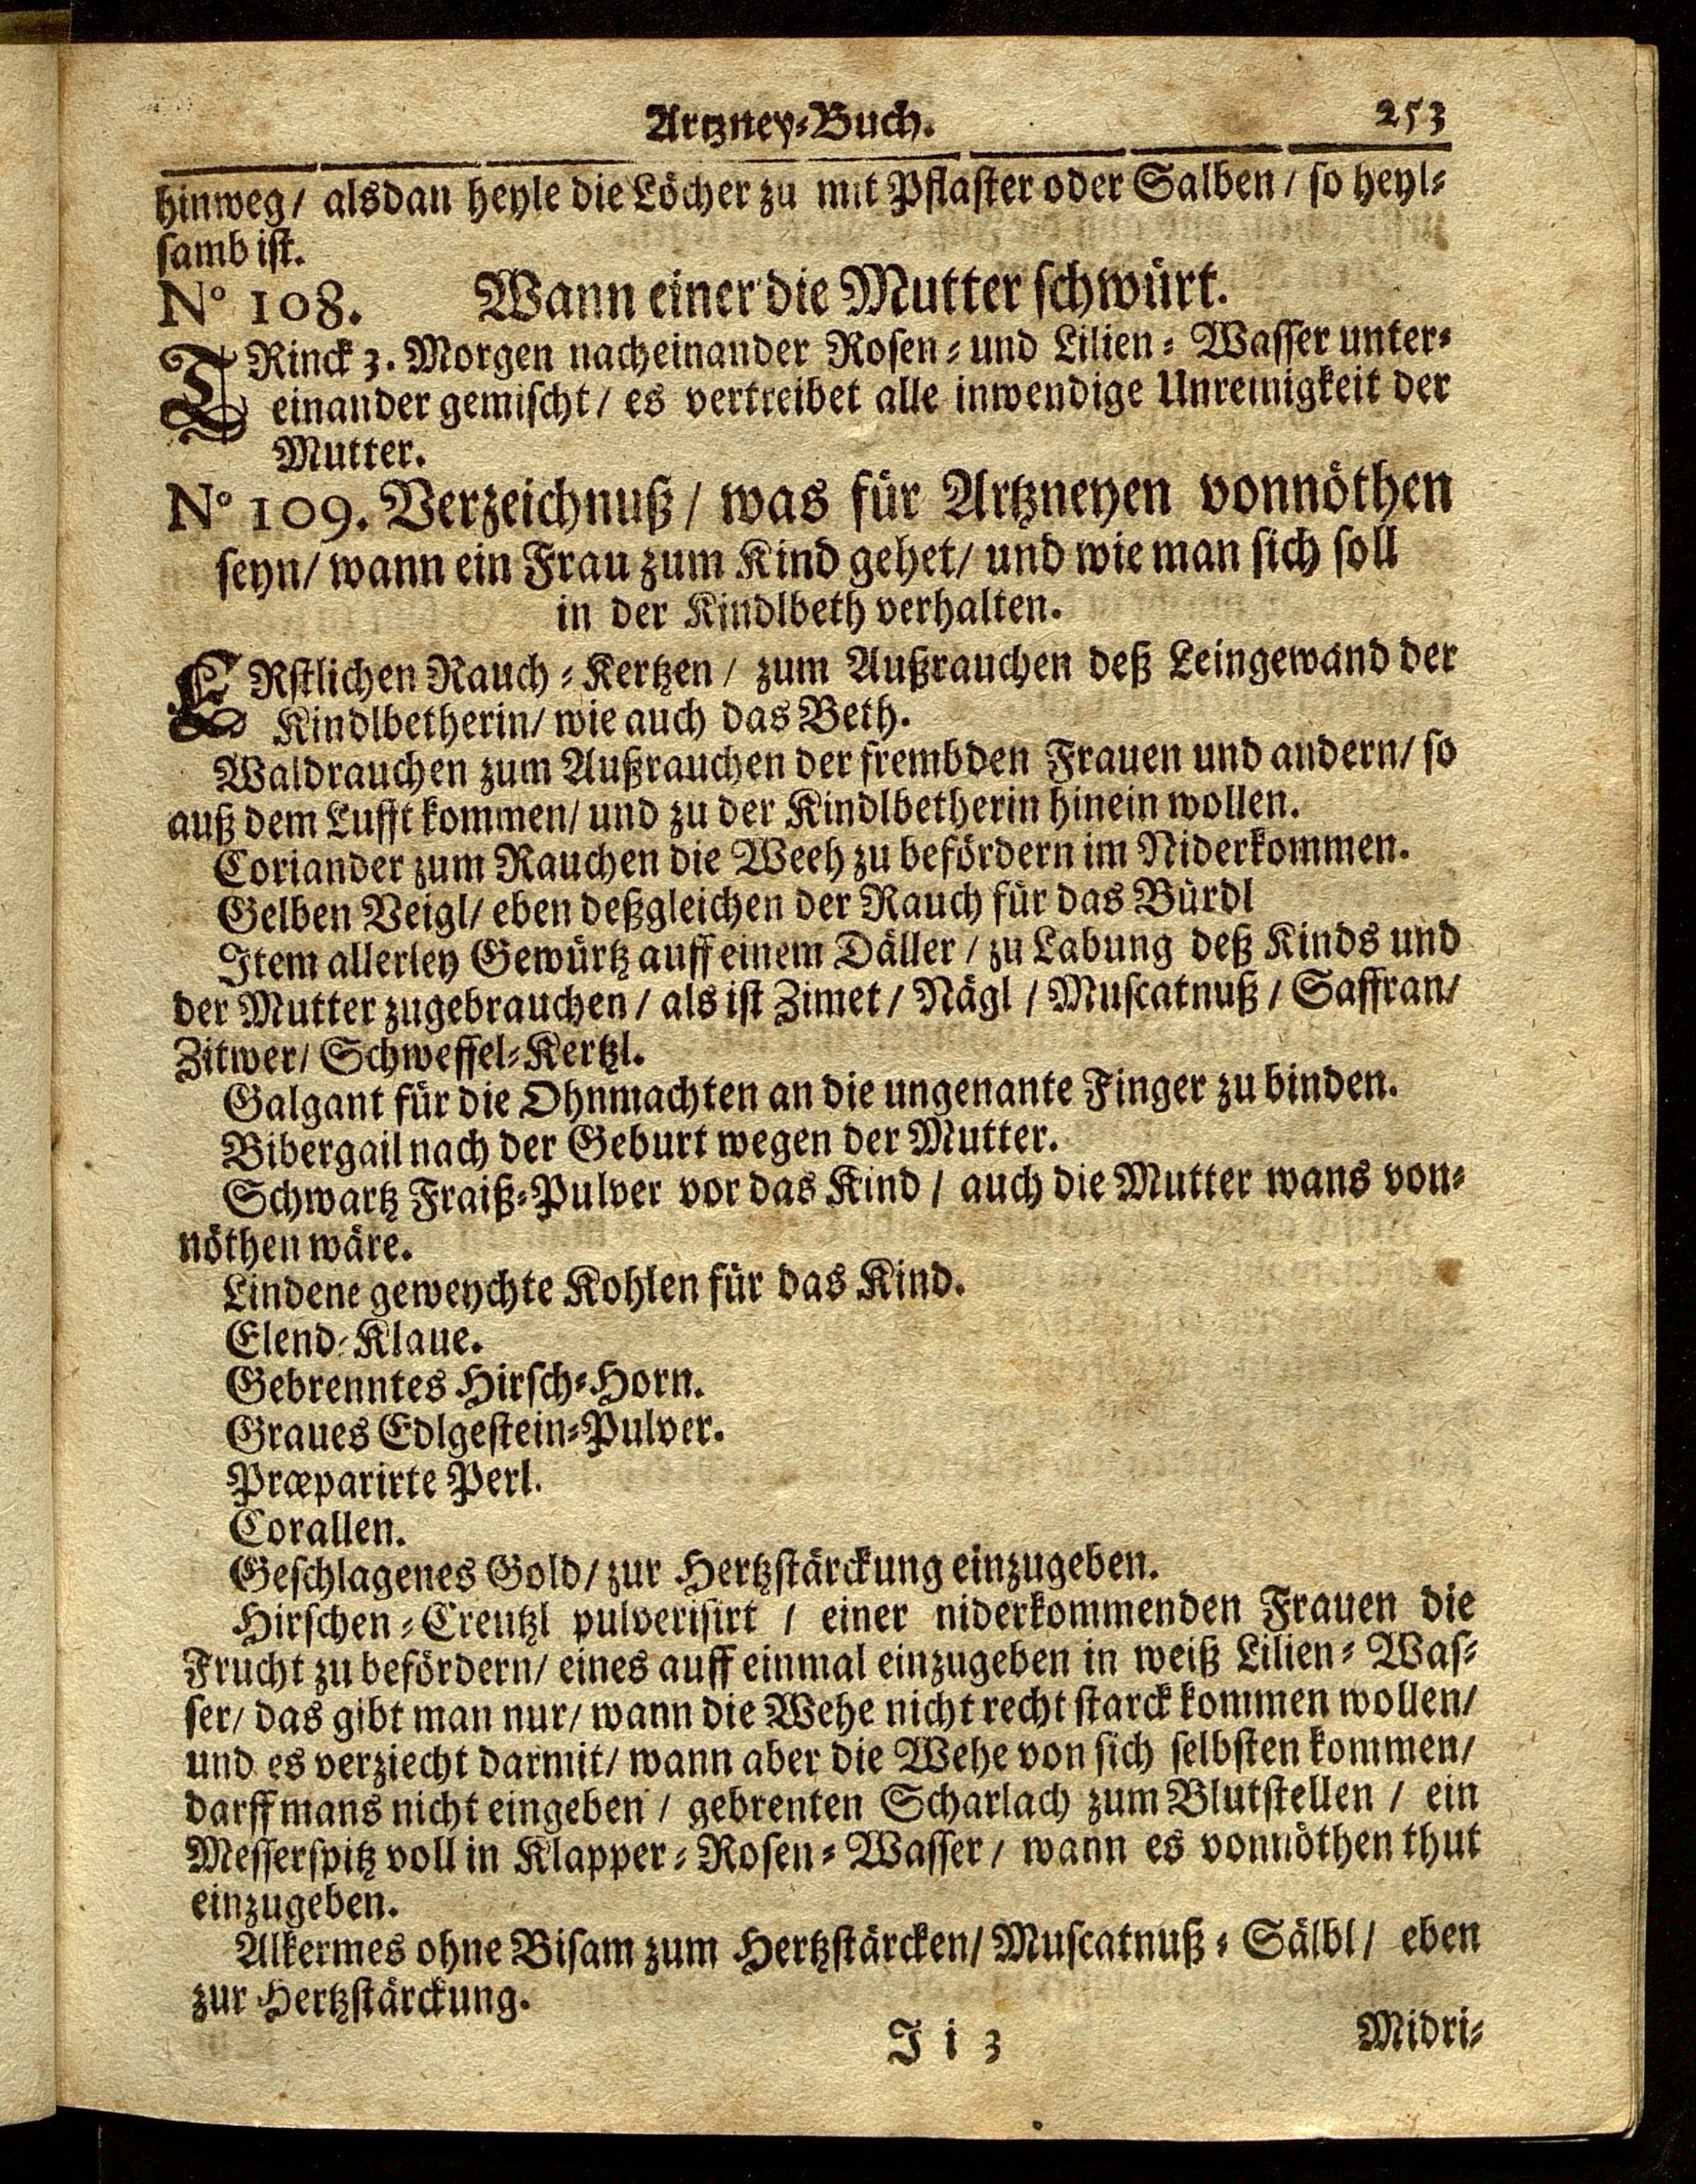 Artzney-Buch. 253
hinweg / alsdan heyle die Löcher zu mit Pflaster oder Salben / so heyl-
samb ist.
N° 108. Wann einer die Mutter schwürt.
TRinck 3. Morgen nacheinander Rosen- und Lilien-Wasser unter-
einander gemischt / es vertreibet alle inwendige Unreinigkeit der
Mutter.
N° 109. Verzeichnuß / was für Artzneyen vonnöthen
seyn / wann ein Frau zum Kind gehet / und wie man sich soll
in der Kindlbeth verhalten.
ERstlichen Rauch-Kertzen / zum Außrauchen deß Leingewand der
Kindlbetherin / wie auch das Beth.
Waldrauchen zum Außrauchen der frembden Frauen und andern / so
auß dem Lufft kommen / und zu der Kindlbetherin hinein wollen.
Coriander zum Rauchen die Weeh zu befördern im Niderkommen.
Gelben Veigl / eben deßgleichen der Rauch für das Bürdl
Item allerley Gewürtz auff einem Däller / zu Labung deß Kinds und
der Mutter zugebrauchen / als ist Zimet / Nägl / Muscatnuß / Saffran /
Zitwer / Schweffel-Kertzl.
Galgant für die Ohnmachten an die ungenante Finger zu binden.
Bibergail nach der Geburt wegen der Mutter.
Schwartz Fraiß-Pulver vor das Kind / auch die Mutter wans von-
nöthen wäre.
Lindene geweychte Kohlen für das Kind.
Elend-Klaue.
Gebrenntes Hirsch-Horn.
Graues Edlgestein-Pulver.
Præparirte Perl.
Corallen.
Geschlagenes Gold / zur Hertzstärckung einzugeben.
Hirschen-Creutzl pulverisirt / einer niderkommenden Frauen die
Frucht zu befördern / eines auff einmal einzugeben in weiß Lilien-Was-
ser / das gibt man nur / wann die Wehe nicht recht starck kommen wollen /
und es verziecht darmit / wann aber die Wehe von sich selbsten kommen /
darff mans nicht eingeben / gebrenten Scharlach zum Blutstellen / ein
Messerspitz voll in Klapper-Rosen-Wasser / wann es vonnöthen thut
einzugeben.
Alkermes ohne Bisam zum Hertzstärcken / Muscatnuß-Sälbl / eben
zur Hertzstärckung.
I i 3 Midri-